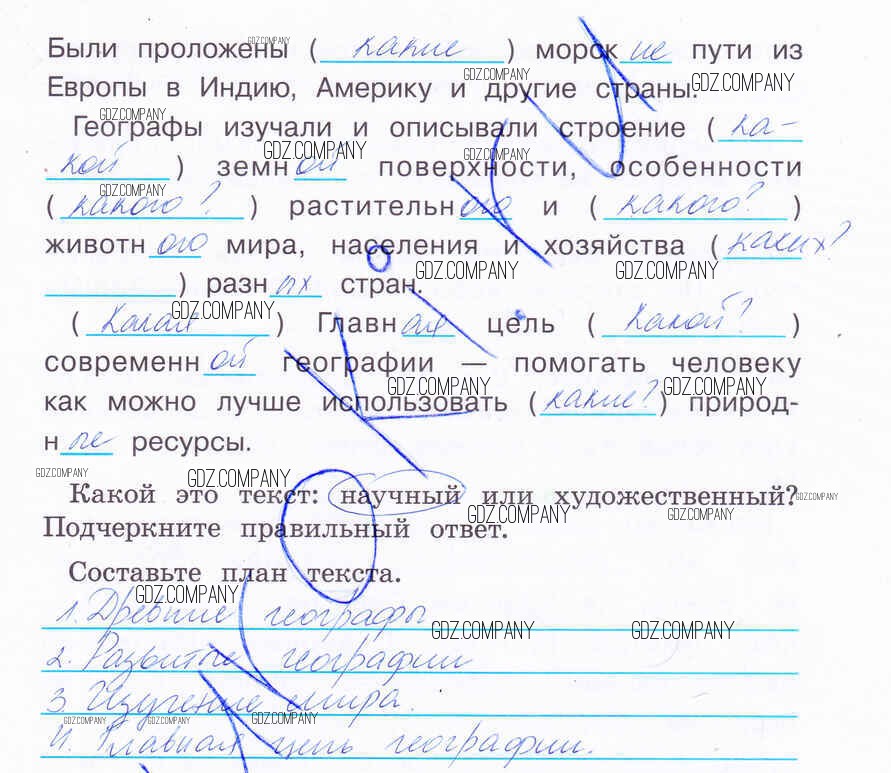 Были проложены ( какие ) морские пути из
Европы в Индию, Америку и другие страны.
Географы изучали и описывали строение ( ка-
кой ) земной поверхности, особенности
( какого? ) растительного и ( какого? )
животного мира, населения и хозяйства ( каких?
) разных стран.
( Какая ) Главная цель ( Какой? )
современной географии — помогать человеку
как можно лучше использовать ( какие? ) природ-
ные ресурсы.
Какой это текст: научный или художественный?
Подчеркните правильный ответ.
Составьте план текста.
1. Древние географы
2. Развитие географии
3. Изучение мира.
4. Главная цель географии.
GDZ.COMPANY